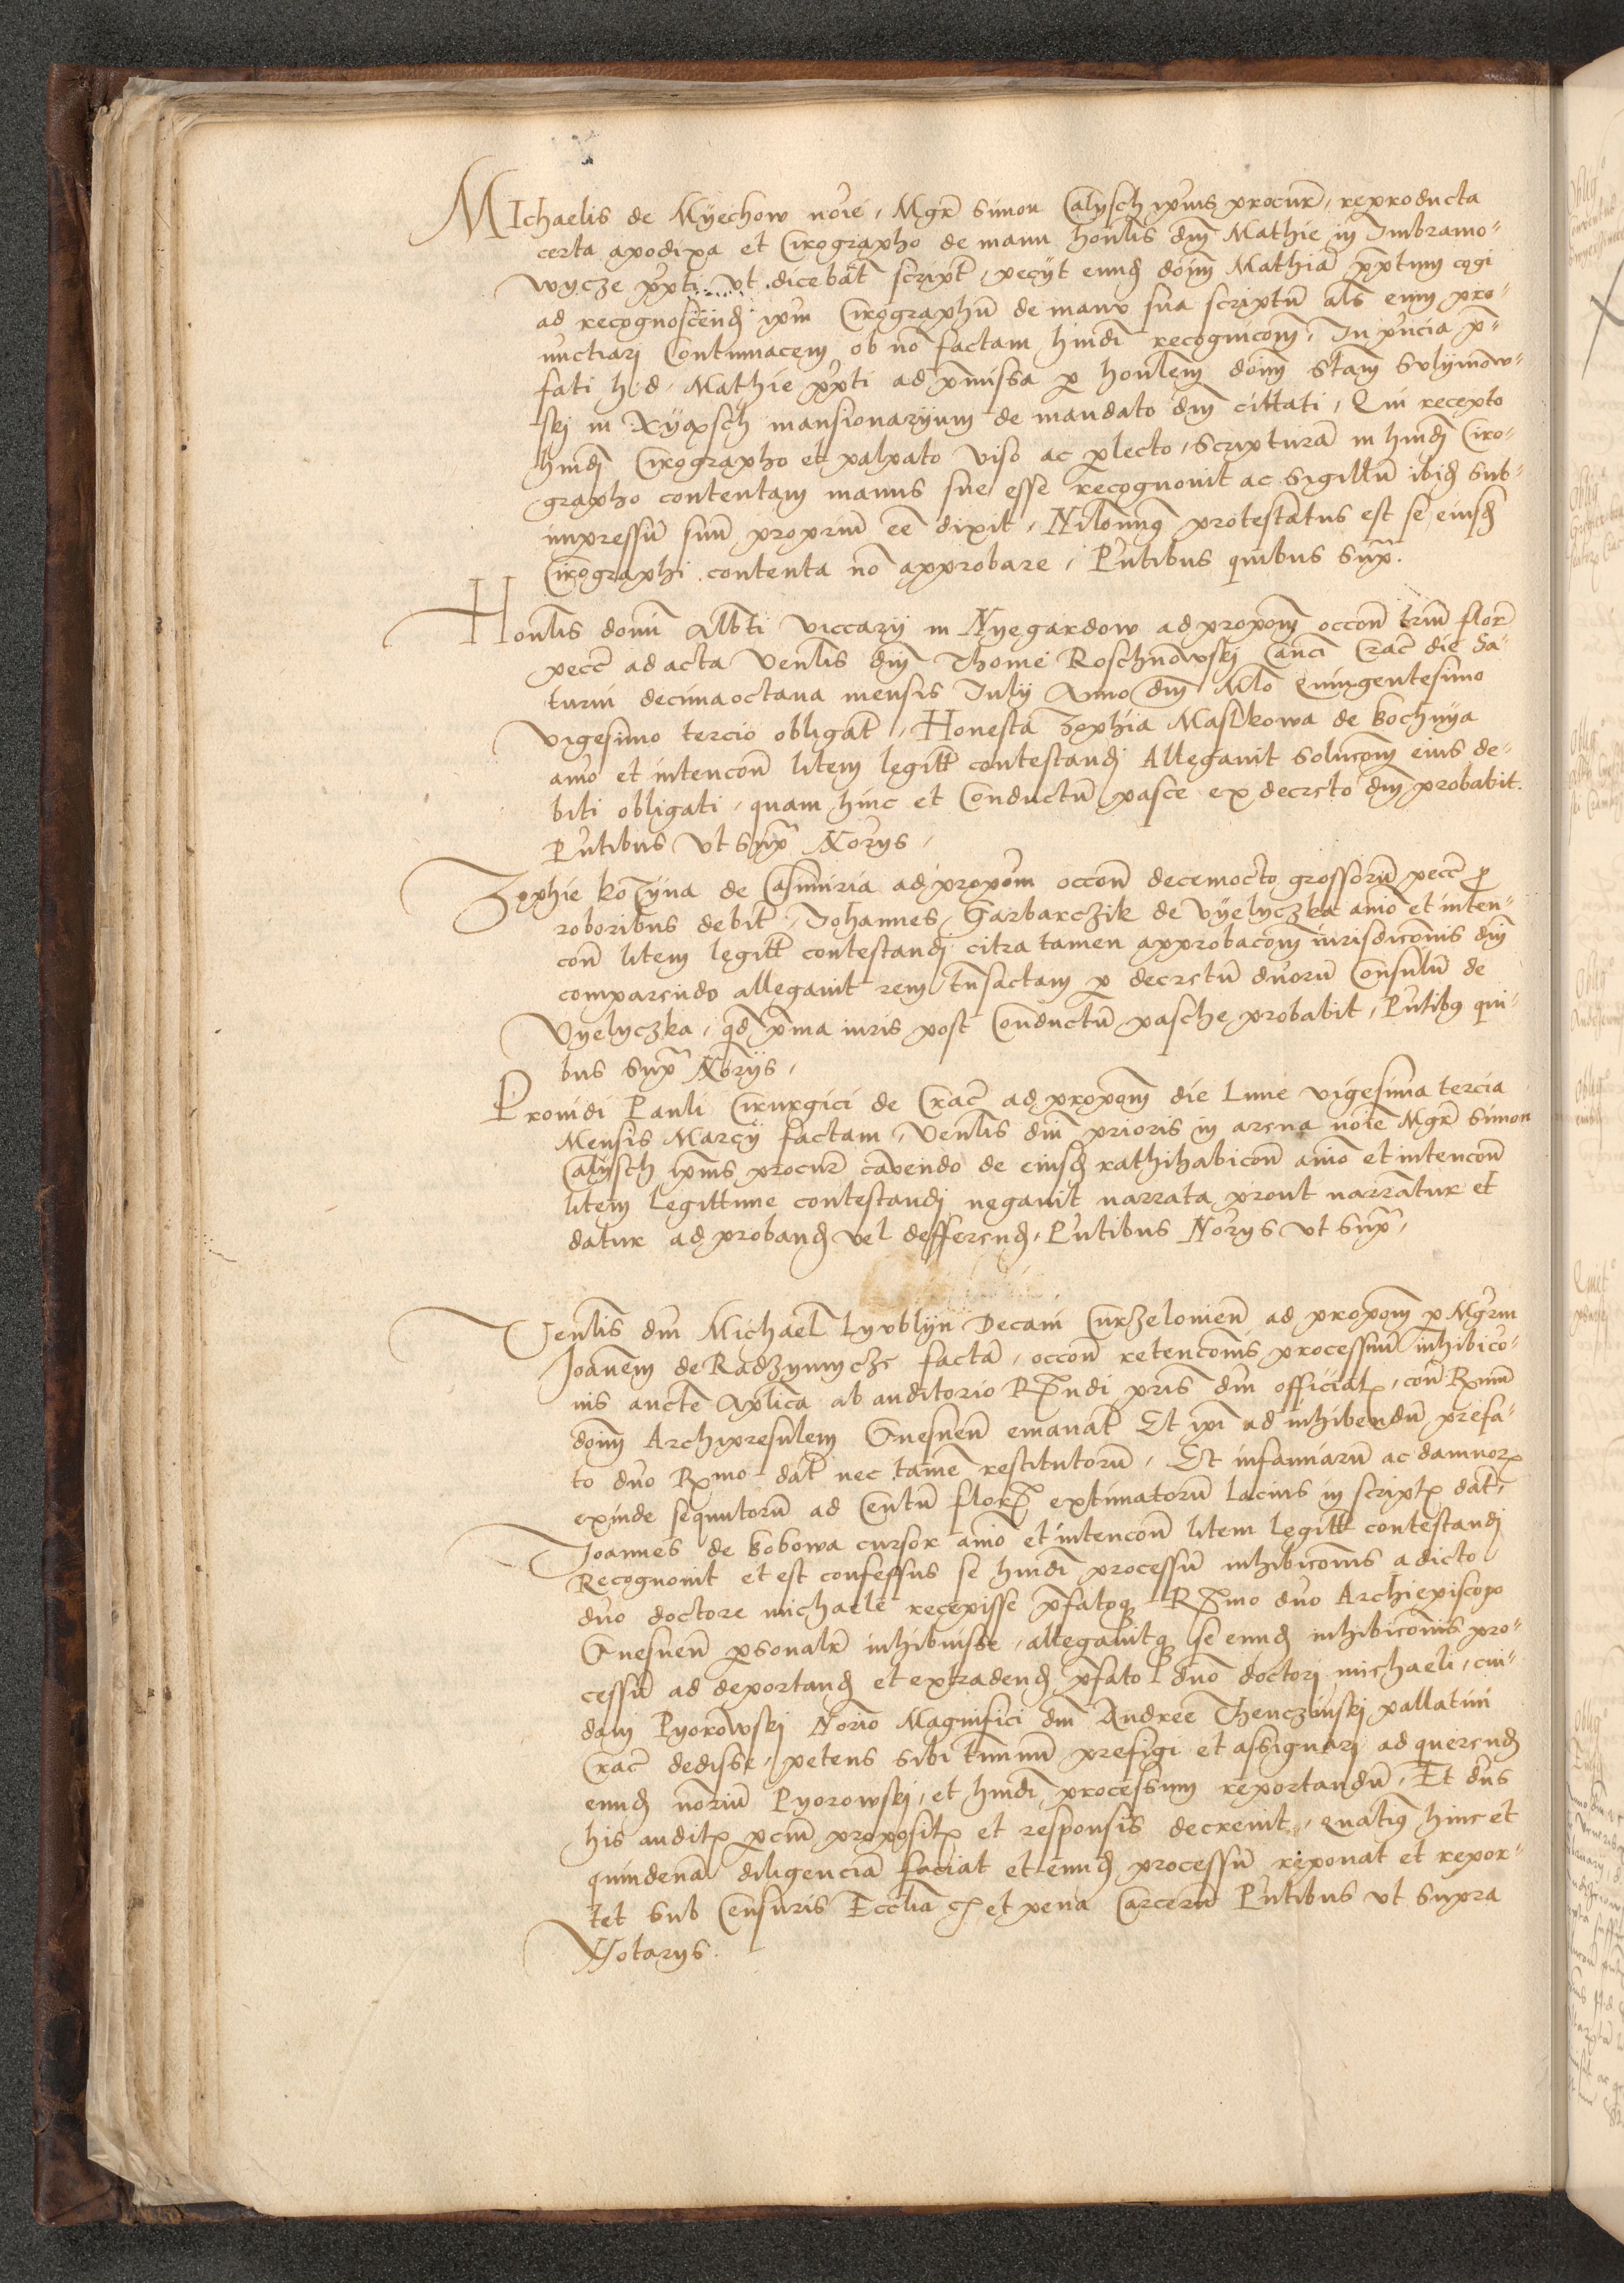 MIchaelis de Myechow noīe, Mgr̄ Simon Calysch ip̄ius procur̄, reproducta
certa apodixa et Cirographo de manu hon̄lis dn̄i Mathie in Imbramo-
wycze pp̄ti ut dicebat̄ script̄, peciit eund̄ dōim Mathiā pp̄tum cogi
ad recognoscend̄ ip̄m Cirographū de manu sua scriptū al̄s eum pro-
nuctiari Contumacem ob nō factam hm̄di recognicōm, In p̄ncia p̄-
fati h. d. Mathie pp̄ti ad p̄missa p honl̄em dōim Stam̄ Sulymow-
skj in Xyąsch mansionarium de mandato dn̄i cittati, Qui recepto
hm̄di Cirographo et palpato viso ac plecto, scripturā in hm̄di Ciro-
grapho contentam manus sue esse recognovit ac sigillū ibid̄ sub-
impressū suū propriū eē dixit, Nilomin9 protestatus est se eiusd̄
Cirographi contenta nō approbare, Pn̄tibus quibus sup̄.
Honl̄is domī Alb̄ti viccarij in Nyegardow ad propoōm occōn triū flor̄
pecc̄ ad acta Venl̄is dn̄i Thome Roschnowskj Canci Crac̄ die Sa-
turni decimaoctava mensis Julij Anno dn̄i Mlō Quingentesimo
vigesimo tercio obligat̄, Honesta Zophia Maslkowa de Bochnya
aīo et intencōn litem legitt̄ contestandj Allegavit solucōm eius de-
biti obligati, quam hinc et Conductū pasce ex decreto dn̄i probabit.
Pn̄tibus ut sup̄ Norijs,
Zophie koZyna de Casimiria ad propoōm occōn decemocto grossorū pecc̄ p
roboribus debit̄, Johannes Garbarczik de Vyelyczka aīo et inten-
cōn litem legitt̄ contestandj citra tamen approbacōm iurisdicōnis dn̄i
comparendo allegavit rem tn̄sactam p decretū duorū Consulū de
Vyelyczka, qd̄ p̄ma iuris post Conductū pasche probabit, Pn̄tib9 qui-
bus sup̄ Norijs,
Providi Pauli Cirurgici de Crac̄ ad propoōm die Lune vigesima tercia
Mensis Marcij factam, Venl̄is dn̄i prioris in arena noīe Mgr̄ Simon
Calysch ip̄ius procur̄ cavendo de eiusd̄ rathihabicōn aīo et intencōn
litem legittime contestandj negavit narrata prout narrātur et
datur ad proband̄ vel defferend̄, Pn̄tibus Norijs ut sup̄,
Venl̄is dn̄i Michael̄ Lyublyn Decani Curzelovien̄ ad propoōm p Mgr̄m
Joan̄em de Radzymyncze factā, occōn retencōnis processuū inhibicō-
nis auctē Aplica ab auditorio R̄ndi pris dn̄i officialis, con̄ R̄mum
dōim Archipresulem Gnesnen̄ emanat̄ Et ip̄i ad inhibendū prefa-
to dno R̄mo dat̄ nec tamē restitutorū, Et infamiarū ac damnor̄
exinde sequutorū ad Centū flor̄ extimatorū lacius in scriptis dat̄,
Joannes de Bobowa cursor aīo et intencōn litem legitt̄ contestandj
Recognovit et est confessus se hm̄di processū inhibicōnis a dicto
dno doctore michaele recepisse p̄fatoq3 R̄mo dno Archiepiscopo
Gnesnen̄ p̄sonalr̄ inhibuisse, allegavitq3 se eund̄ inhibicōnis pro-
cessū ad deportand̄ et extradend̄ p̄fato dno doctori michaeli, cui-
dam Pyorowskj Norio Magnifici dn̄i Andree Thenczinskj pallatini
Crac̄ dedisse, petens sibi t̄minū prefigi et assignarj ad querend̄
eund̄ noriū Pyorowskj, et hm̄di processum reportandū, Et dn̄s
his auditis pciū propositis et responsis decrevit, quatin9 hinc et
quindenā diligenciā faciat et eund̄ processū reponat et repor-
tet sub Censuris Eccl̄iasticis et pena Carcerū Pn̄tibus ut supra
Notarijs.